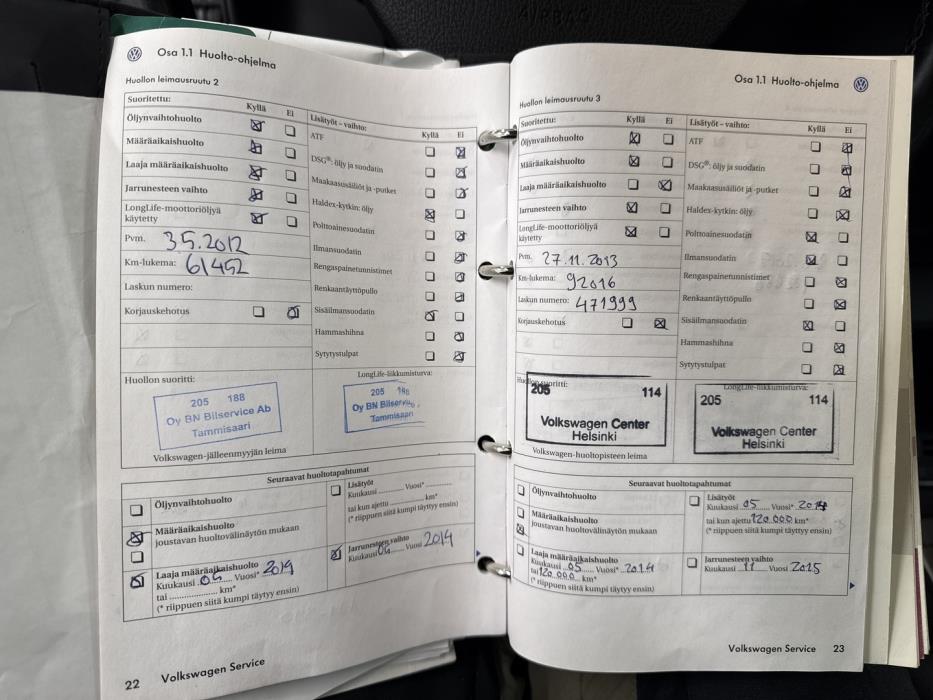 AIRBAG
Osa 1.1 Huolto-ohjelma
Huollon leimausruutu 2
Suoritettu: Kyllä Ei
Öljynvaihtohuolto
Määräaikaishuolto
Laaja määräaikaishuolto
Jarrunesteen vaihto
LongLife-moottoriöljyä
käytetty
Pvm. 3.5.2012
Km-lukema: 61452
Laskun numero:
Korjauskehotus
Lisätyöt – vaihto:
Kyllä Ei
ATF
DSG®: öljy ja suodatin
Maakaasusäiliöt ja -putket
Haldex-kytkin: öljy
Polttoainesuodatin
Ilmansuodatin
Rengaspainetunnistimet
Renkaantäyttöpullo
Sisäilmansuodatin
Hammashihna
Sytytystulpat
Huollon suoritti:
205 188
Oy BN Bilservice Ab
Tammisaari
Volkswagen-jälleenmyyjän leima
LongLife-liikkumisturva:
205 188
Oy BN Bilservice
Tammisaari
Seuraavat huoltotapahtumat
Öljynvaihtohuolto
Määräaikaishuolto
joustavan huoltovälinäytön mukaan
Laaja määräaikaishuolto
Kuukausi 04 Vuosi*
tai .................... km*
(* riippuen siitä kumpi täytyy ensin)
Lisätyöt
Kuukausi ............ Vuosi* ............
tai kun ajettu .................. km*
(* riippuen siitä kumpi täytyy ensin)
Jarrunesteen vaihto
Kuukausi 04 Vuosi 2014
22 Volkswagen Service
Osa 1.1 Huolto-ohjelma
Huollon leimausruutu 3
Suoritettu: Kyllä Ei
Öljynvaihtohuolto
Määräaikaishuolto
Laaja määräaikaishuolto
Jarrunesteen vaihto
LongLife-moottoriöljyä
käytetty
Pvm. 27.11.2013
Km-lukema: 92016
Laskun numero: 471999
Korjauskehotus
Lisätyöt – vaihto:
Kyllä Ei
ATF
DSG®: öljy ja suodatin
Maakaasusäiliöt ja -putket
Haldex-kytkin: öljy
Polttoainesuodatin
Ilmansuodatin
Rengaspainetunnistimet
Renkaantäyttöpullo
Sisäilmansuodatin
Hammashihna
Sytytystulpat
Huollon suoritti:
205 114
Volkswagen Center
Helsinki
Volkswagen-huoltopisteen leima
LongLife-liikkumisturva:
205 114
Volkswagen Center
Helsinki
Seuraavat huoltotapahtumat
Öljynvaihtohuolto
Määräaikaishuolto
joustavan huoltovälinäytön mukaan
Laaja määräaikaishuolto
Kuukausi 05 Vuosi* 2014
tai 120.000 km*
(* riippuen siitä kumpi täytyy ensin)
Lisätyöt
Kuukausi 05 Vuosi*
tai kun ajettu 120.000 km*
(* riippuen siitä kumpi täytyy ensin)
Jarrunesteen vaihto
Kuukausi 11 Vuosi 2015
Volkswagen Service 23